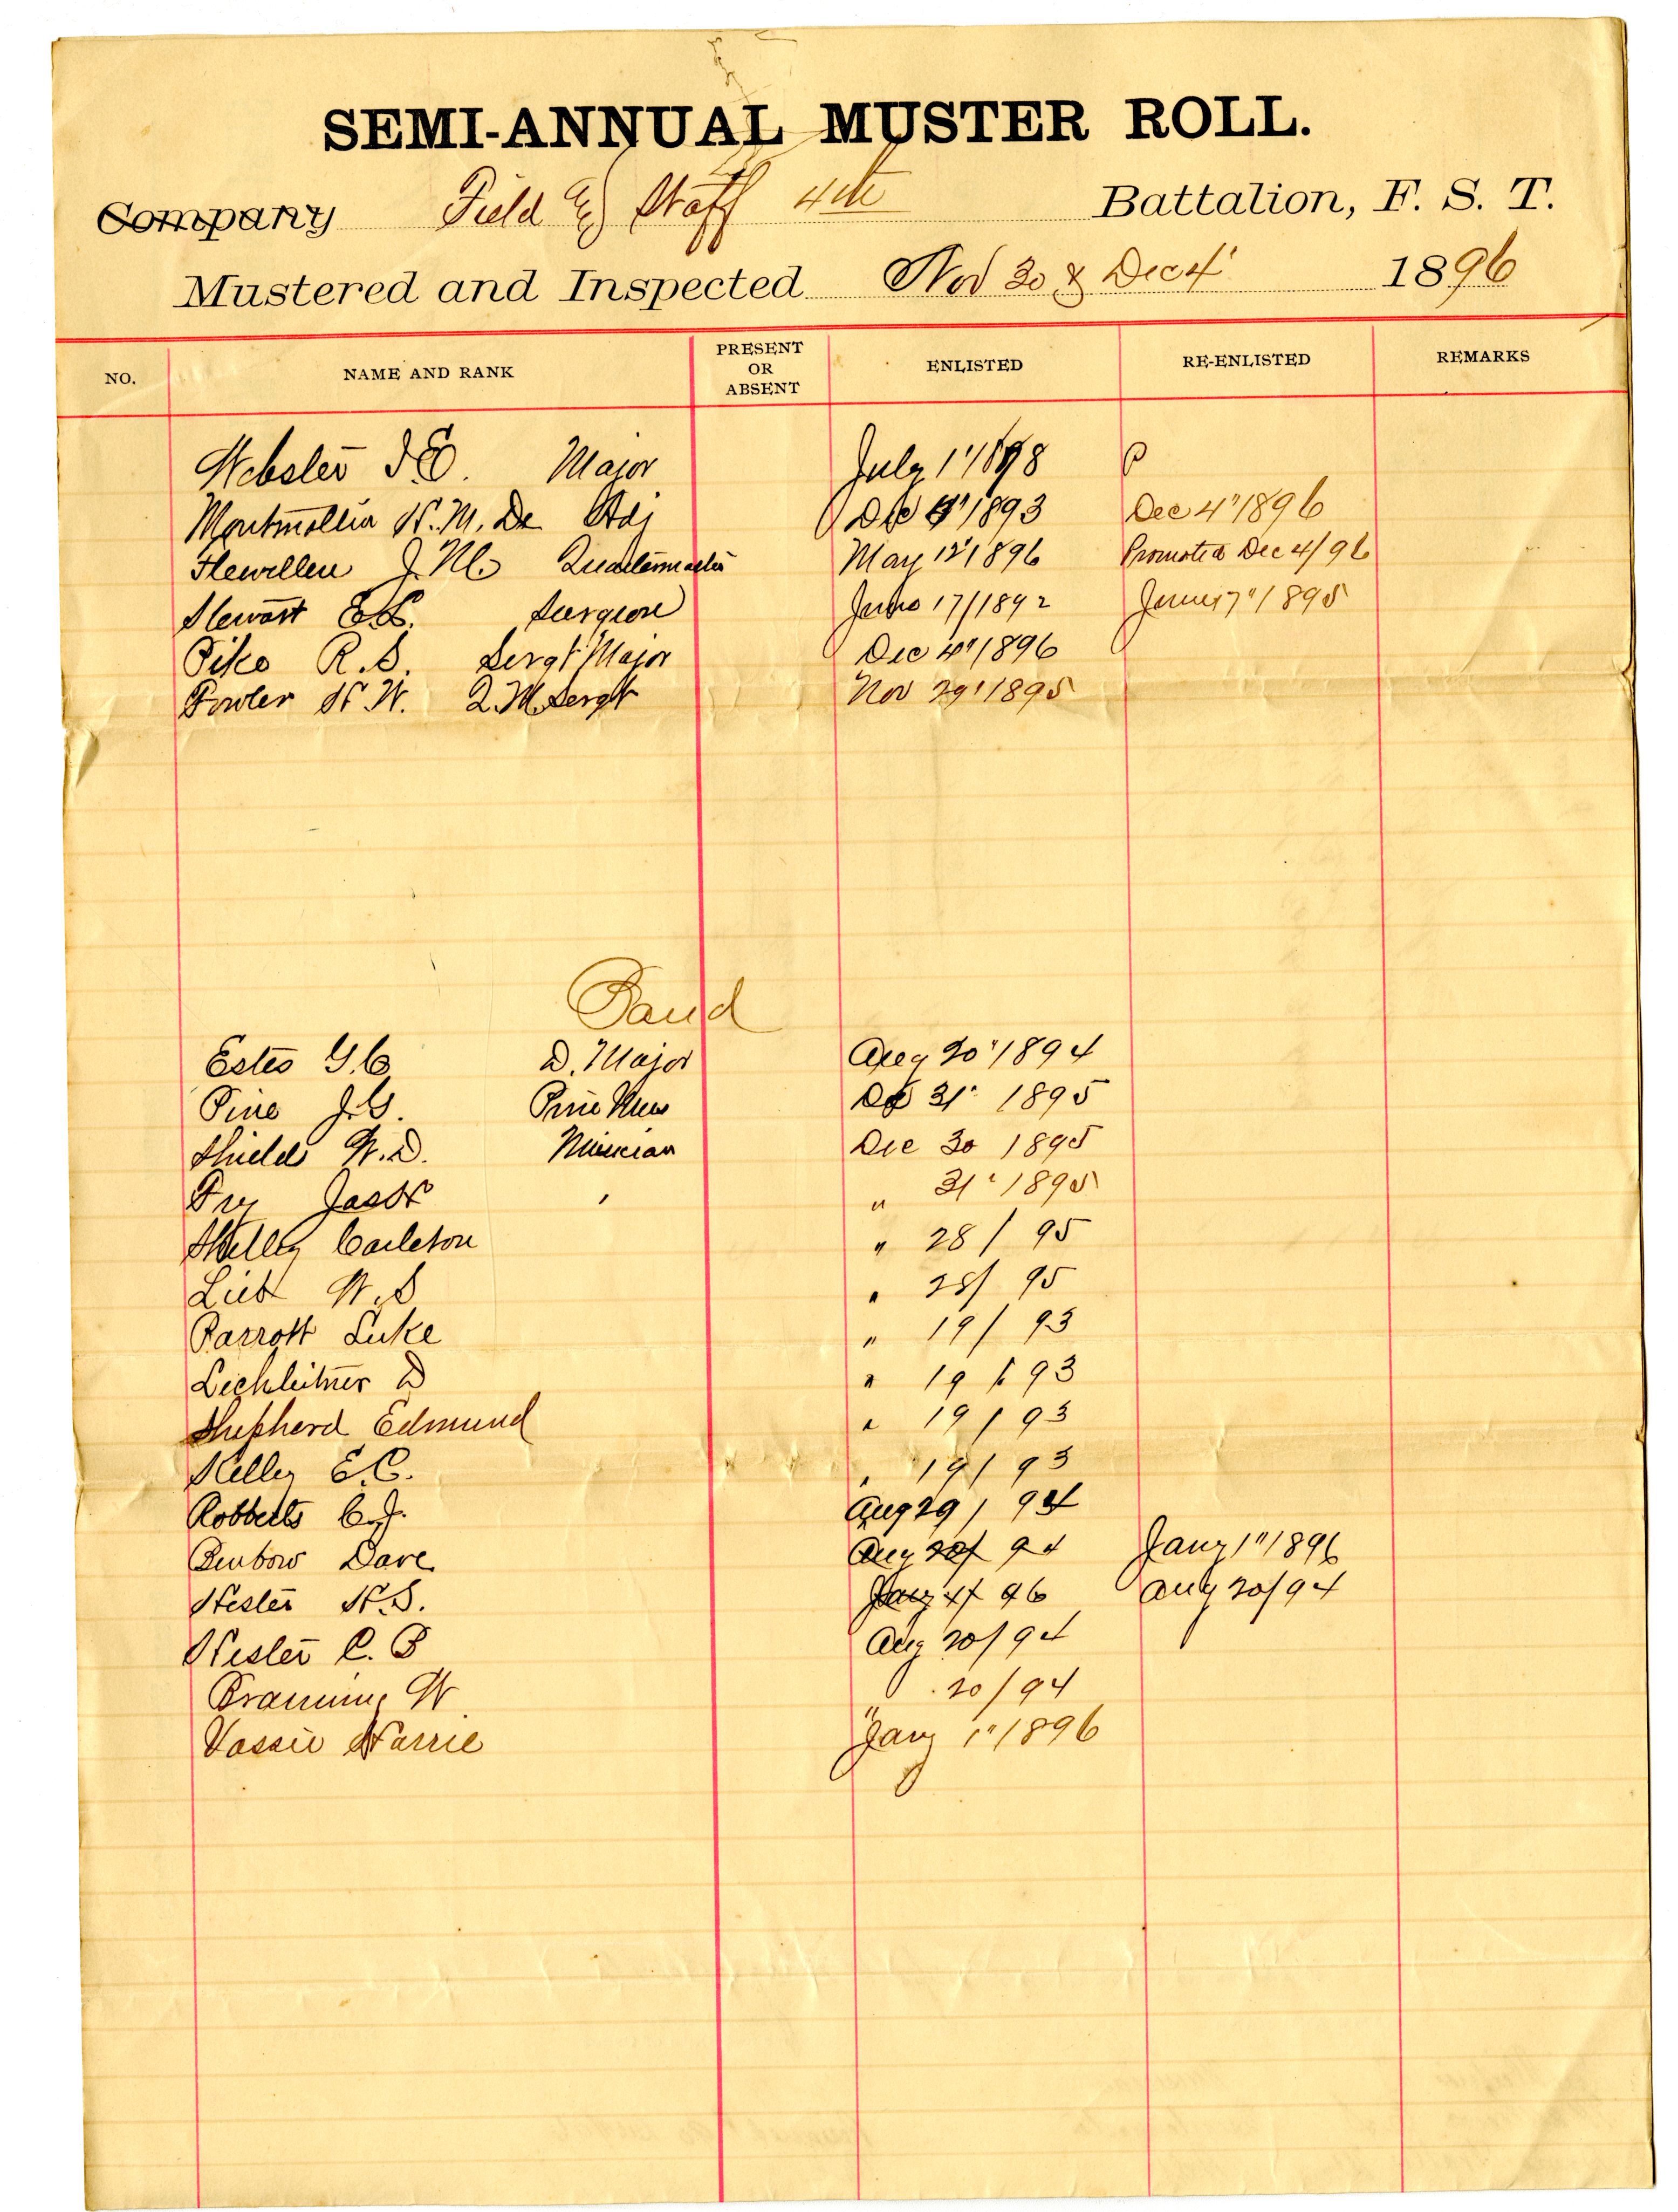 SEMI-ANNUAL MUSTER ROLL.
Company Field & Staff 4th Battalion, F. S. T.
Mustered and Inspected Nov 30 & Dec 4" 1896
NO. NAME AND RANK PRESENT OR ABSENT ENLISTED RE-ENLISTED REMARKS
Webster J. E. Major July 1"
Montmollin H. M. De Adj 1893 Dec 4" 1896
Flewellen J. M. Quartermaster May 12" 1896 Promoted Dec 4/96
Stewart E. L. Surgeon June 17/1892 June 17" 1895
Pike R. S. Sergt Major Dec 4" 1896
Fowler H. W. Q. M. Sergt Nov 29" 1895
Band
Estes G. C. D. Major Aug 20" 1894
Pine J. G. Prin Mus 31" 1895
Shields W. D. Musician Dec 30 1895
Fry " 31" 1895
Skelly Carleton " 28/ 95
Lieb W. S " 28/ 95
Parrott Luke " 19/ 93
Lechleitner D " 19/ 93
Shepherd Edmund " 19/ 93
Kelley E. C. " 19/ 93
Robberts C. J. Aug 29/ 94
Benbow Dave Aug 20/ 94 Jany 1" 1896
Hester H. S. Jany 4/ 96 Aug 20/94
Hester C. B Aug 20/94
Branning W " 20/94
Vassie Harrie Jany 1" 1896